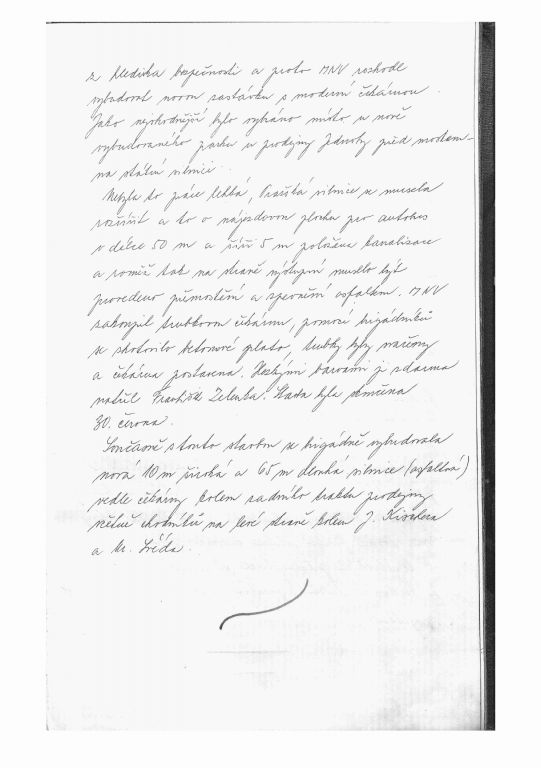 z hlediska bezpečnosti a proto MNV rozhodl
vybudovat novou zastávku s moderní čekárnou.
Jako nejvhodnější bylo vybráno místo u nově
vybudovaného parku u prodejny Jednoty před mostem
na státní silnici.
Nebyla to práce lehká, silnice se musela
rozšířit a to o nájezdovou plochu pro autobus
v délce 50 m a šíři 5 m položena kanalizace
a rovněž tak na straně výstupní muselo být
provedeno přemostění a zpevnění asfaltem. MNV
zakoupil trubkovou čekárnu, pomocí brigádníků
se zhotovilo betonové plato, trubky byly svařeny
a čekárna postavena. Hezkými barvami ji zdarma
natřel František Zelenka. Stavba byla skončena
30. června.
Současně s touto stavbou se brigádně vybudovala
nová 10 m široká a 65 m dlouhá silnice (asfaltová)
vedle čekárny kolem zadního traktu prodejny
včetně chodníků na levé straně kolem J.
a M.